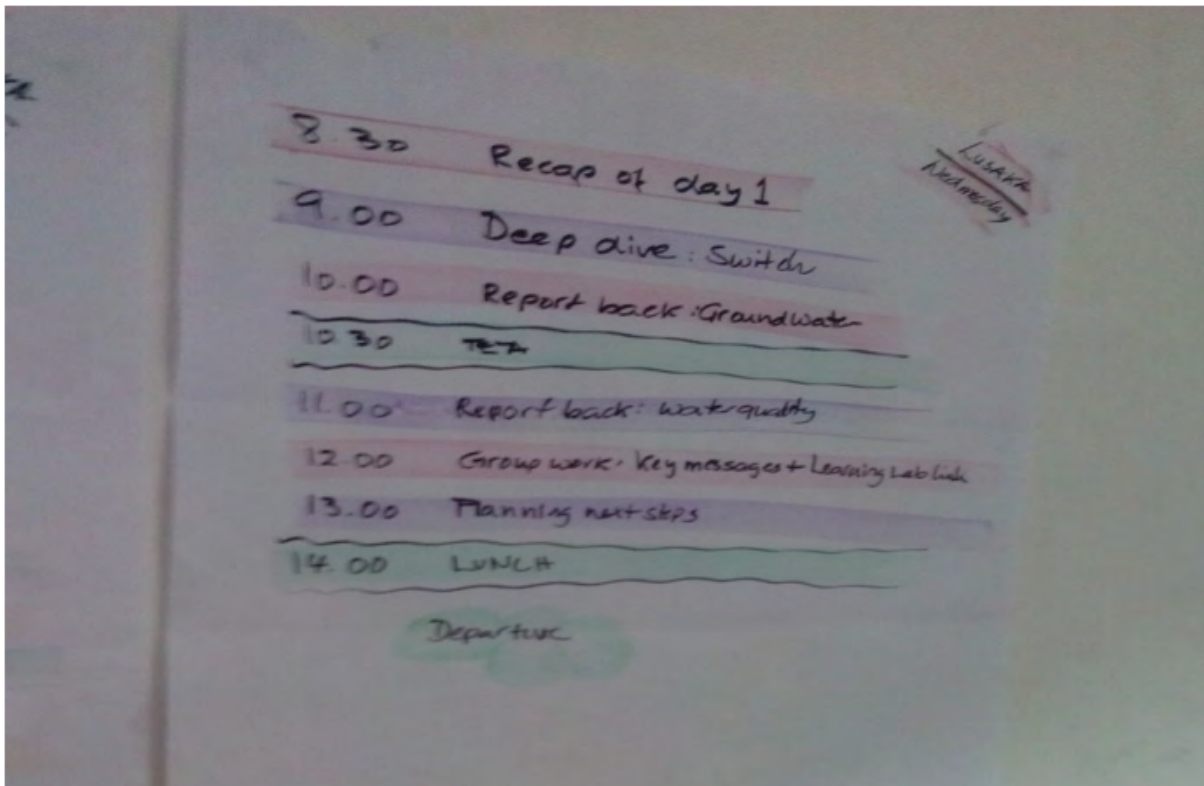 LUSAKA
Wednesday
8.30 Recap of day 1
9.00 Deep dive: Switch
10.00 Report back: Groundwater
10.30 TEA
11.00 Report back: water quality
12.00 Group work: Key messages + Learning Lab link
13.00 Planning next steps
14.00 LUNCH
Departure